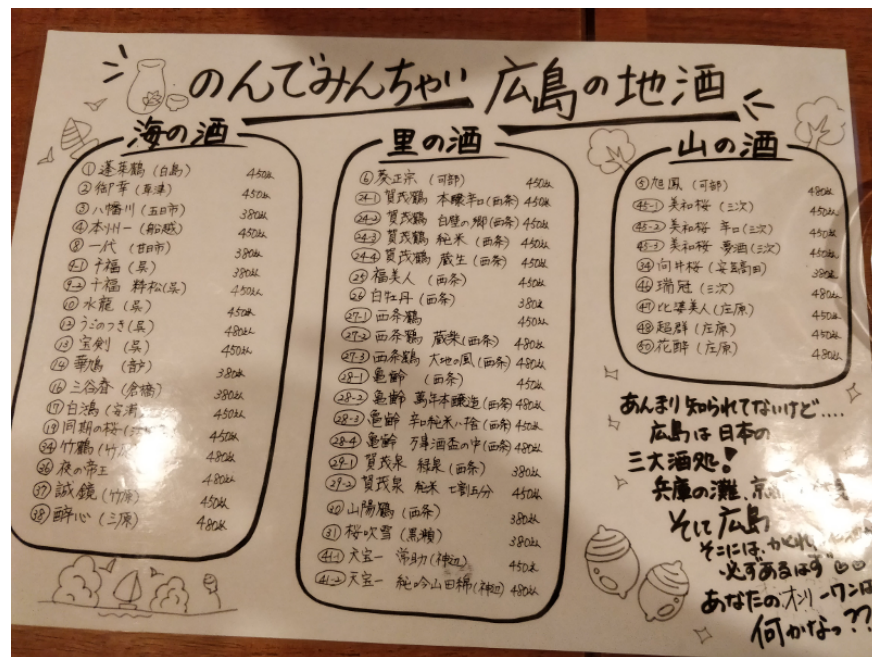 のんでみんちゃい 広島の地酒
海の酒
① 蓬莱鶴 (白島) 450
② 御幸 (草津) 450
③ 八幡川 (五日市) 380
④ 本州一 (船越) 450
⑧ 一代 (廿日市) 380
9-1 千福 (呉) 380
9-2 千福 (呉) 450
⑩ 水龍 (呉) 450
⑫ うごのつき (呉) 480
⑬ 宝剣 (呉) 450
⑭ 華鳩 380
⑯ 三谷春 (倉橋) 380
⑰ 白鴻 450
⑲ 同期の桜 450
竹鶴 480
夜の帝王
㊲ 誠鏡 (竹原) 450
㊳ 酔心 (三原) 480
里の酒
⑥ 葵正宗 (可部) 450
24-1 賀茂鶴 本醸辛口 (西条) 450
24-2 賀茂鶴 白壁の郷 (西条) 450
24-3 賀茂鶴 純米 (西条) 450
24-4 賀茂鶴 蔵生 (西条) 450
㉕ 福美人 (西条) 450
㉖ 白牡丹 (西条) 380
27-1 西条鶴 450
27-2 西条鶴 (西条) 480
27-3 西条鶴 大地の風 (西条) 480
28-1 亀齢 (西条) 450
28-2 亀齢 萬年本醸造 (西条) 480
28-3 亀齢 辛口純米八拾 (西条) 450
28-4 亀齢 万年酒盃の中 (西条) 480
29-1 賀茂泉 緑泉 (西条) 380
29-2 賀茂泉 純米 七割五分 450
㉚ 山陽鶴 (西条) 380
㉛ 桜吹雪 (黒瀬) 380
41-1 天宝一 常助 (神辺) 450
41-2 天宝一 純吟山田錦 (神辺) 480
山の酒
⑤ 旭鳳 (可部) 480
45-1 美和桜 (三次) 450
45-2 美和桜 辛口 (三次) 450
45-3 美和桜 夢酒 (三次) 450
向井桜 (安芸高田) 380
㊻ 瑞冠 (三次) 480
㊼ 比婆美人 (庄原) 450
㊽ 超群 (庄原) 450
㊿ 花酔 (庄原) 480
あんまり知られてないけど....
広島は日本の
三大酒処!
兵庫の灘、京
そして広島
そこには、
必ずあるはず
あなたのオンリーワンは
何かなっ??